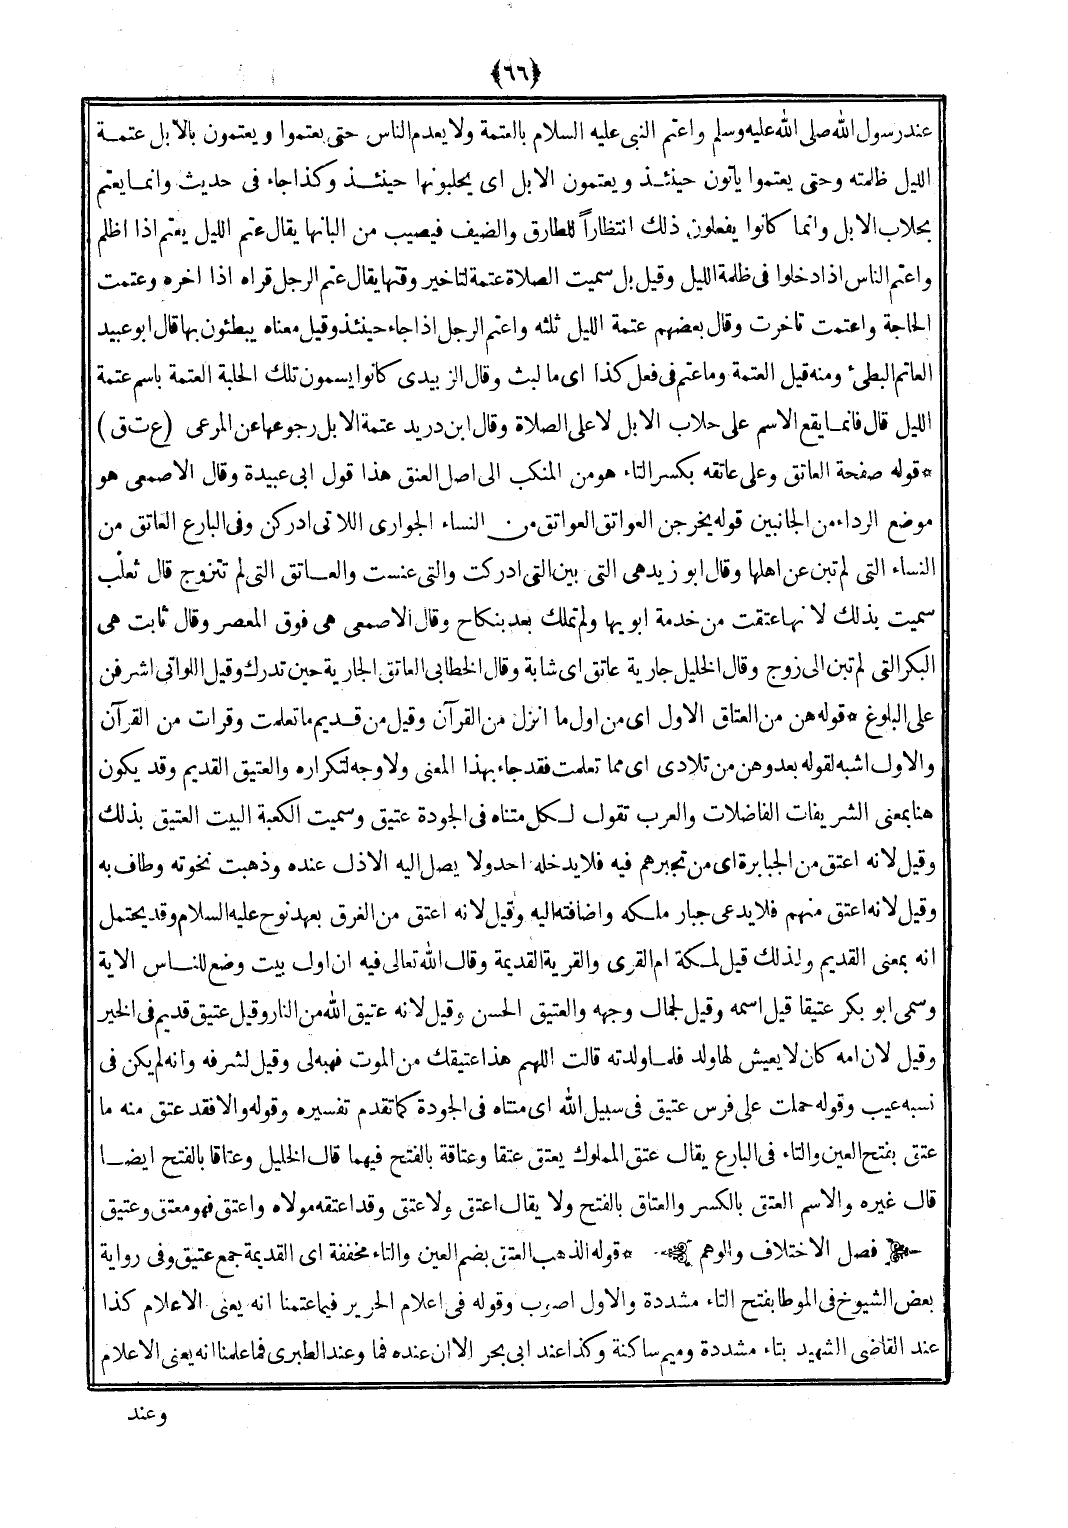 ﴿٦٦﴾
عند رسول الله صلى الله عليه وسلم واعتم النبى عليه السلام بالعتمة ولا يعدم الناس حتى يعتموا ويعتمون بالابل عتمة
الليل ظلمته وحتى يعتموا يأتون حينئذ ويعتمون الابل اى يحلبونها حينئذ وكذا جاء فى حديث وانما يعتم
بحلاب الابل وانما كانوا يفعلون ذلك انتظاراً للطارق والضيف فيصيب من البانها يقال عتم الليل يعتم اذا اظلم
واعتم الناس اذا دخلوا فى ظلمة الليل وقيل بل سميت الصلاة عتمة لتاخير وقتها يقال عتم الرجل قراه اذا اخره وعتمت
الحاجة واعتمت تاخرت وقال بعضهم عتمة الليل ثلثه واعتم الرجل اذا جاء حينئذ وقيل معناه يبطئون بها قال ابو عبيد
العاتم البطىء ومنه قيل العتمة وما عتم فى فعل كذا اى ما لبث وقال الزبيدى كانوا يسمون تلك الحلبة العتمة باسم عتمة
الليل قال فانما يقع الاسم على حلاب الابل لا على الصلاة وقال ابن دريد عتمة الابل رجوعها عن المرعى (ع ت ق)
*قوله صفحة العاتق وعلى عاتقه بكسر التاء هو من المنكب الى اصل العنق هذا قول ابى عبيدة وقال الاصمعى هو
موضع الرداء من الجانبين قوله يخرجن العواتق العواتق من النساء الجوارى اللاتى ادركن وفى البارع العاتق من
النساء التى لم تبن عن اهلها وقال ابو زيد هى التى بين التى ادركت والتى عنست والعاتق التى لم تتزوج قال ثعلب
سميت بذلك لانها عتقت من خدمة ابويها ولم تملك بعد بنكاح وقال الاصمعى هى فوق المعصر وقال ثابت هى
البكر التى لم تبن الى زوج وقال الخليل جارية عاتق اى شابة وقال الخطابى العاتق الجارية حين تدرك وقيل اللواتى اشرفن
على البلوغ *قوله هن من العتاق الاول اى من اول ما انزل من القرآن وقيل من قديم ما تعلمت وقرات من القرآن
والاول اشبه لقوله بعد وهن من تلادى اى مما تعلمت فقد جاء بهذا المعنى ولا وجه لتكراره والعتيق القديم وقد يكون
هنا بمعنى الشريفات الفاضلات والعرب تقول لكل متناه فى الجودة عتيق وسميت الكعبة البيت العتيق بذلك
وقيل لانه اعتق من الجبابرة اى من تجبرهم فيه فلا يدخله احد ولا يصل اليه الا ذل عنده وذهبت نخوته وطاف به
وقيل لانه اعتق منهم فلا يدعى جبار ملكه واضافته اليه وقيل لانه اعتق من الغرق بعهد نوح عليه السلام وقد يحتمل
انه بمعنى القديم ولذلك قيل لمكة ام القرى والقرية القديمة وقال الله تعالى فيه ان اول بيت وضع للناس الاية
وسمى ابو بكر عتيقا قيل اسمه وقيل لجمال وجهه والعتيق الحسن وقيل لانه عتيق الله من النار وقيل عتيق قديم فى الخير
وقيل لان امه كان لا يعيش لها ولد فلما ولدته قالت اللهم هذا عتيقك من الموت فهبه لى وقيل لشرفه وانه لم يكن فى
نسبه عيب وقوله حملت على فرس عتيق فى سبيل الله اى متناه فى الجودة كما تقدم تفسيره وقوله والا فقد عتق منه ما
عتق بفتح العين والتاء فى البارع يقال عتق المملوك يعتق عتقا وعتاقة بالفتح فيهما قال الخليل وعتاقا بالفتح ايضا
قال غيره والاسم العتق بالكسر والعتاق بالفتح ولا يقال اعتق ولا عتق وقد اعتقه مولاه واعتق فهو معتق وعتيق
فصل الاختلاف والوهم *قوله الذهب العتق بضم العين والتاء مخففة اى القديمة جمع عتيق وفى رواية
بعض الشيوخ فى الموطا بفتح التاء مشددة والاول اصوب وقوله فى اعلام الحرير فيما عتمنا انه يعنى الاعلام كذا
عند القاضى الشهيد بتاء مشددة وميم ساكنة وكذا عند ابى بحر الا ان عنده فما وعند الطبرى فما علمنا انه يعنى الاعلام
وعند